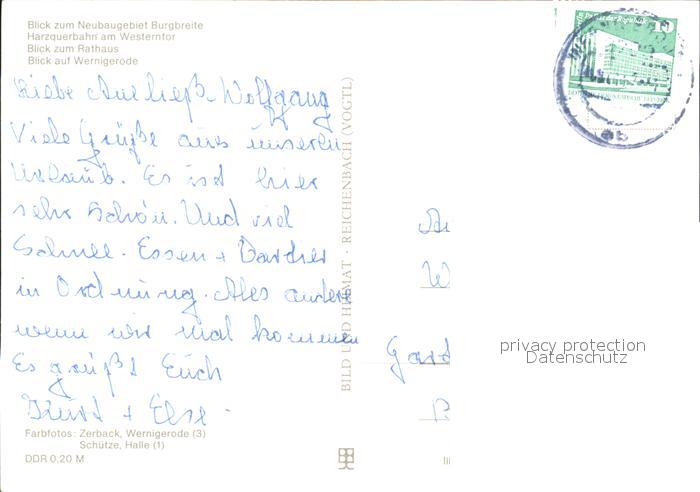 Blick zum Neubaugebiet Burgbreite
Harzquerbahn am Westerntor
Blick zum Rathaus
Blick auf Wernigerode
Liebe Anneließ Wolfgang
Viele Grüße aus unseren
Urlaub. Es ist hier
sehr schön. Und viel
Schnee. Essen +
in Ordnung. Alles andere
wenn wir mal kommen
Es grüßt Euch
Kurt + Else
Farbfotos: Zerback, Wernigerode (3)
Schütze, Halle (1)
DDR 0,20 M
BILD UND HEIMAT · REICHENBACH (VOGTL)
10
W
Gart
privacy protection
Datenschutz